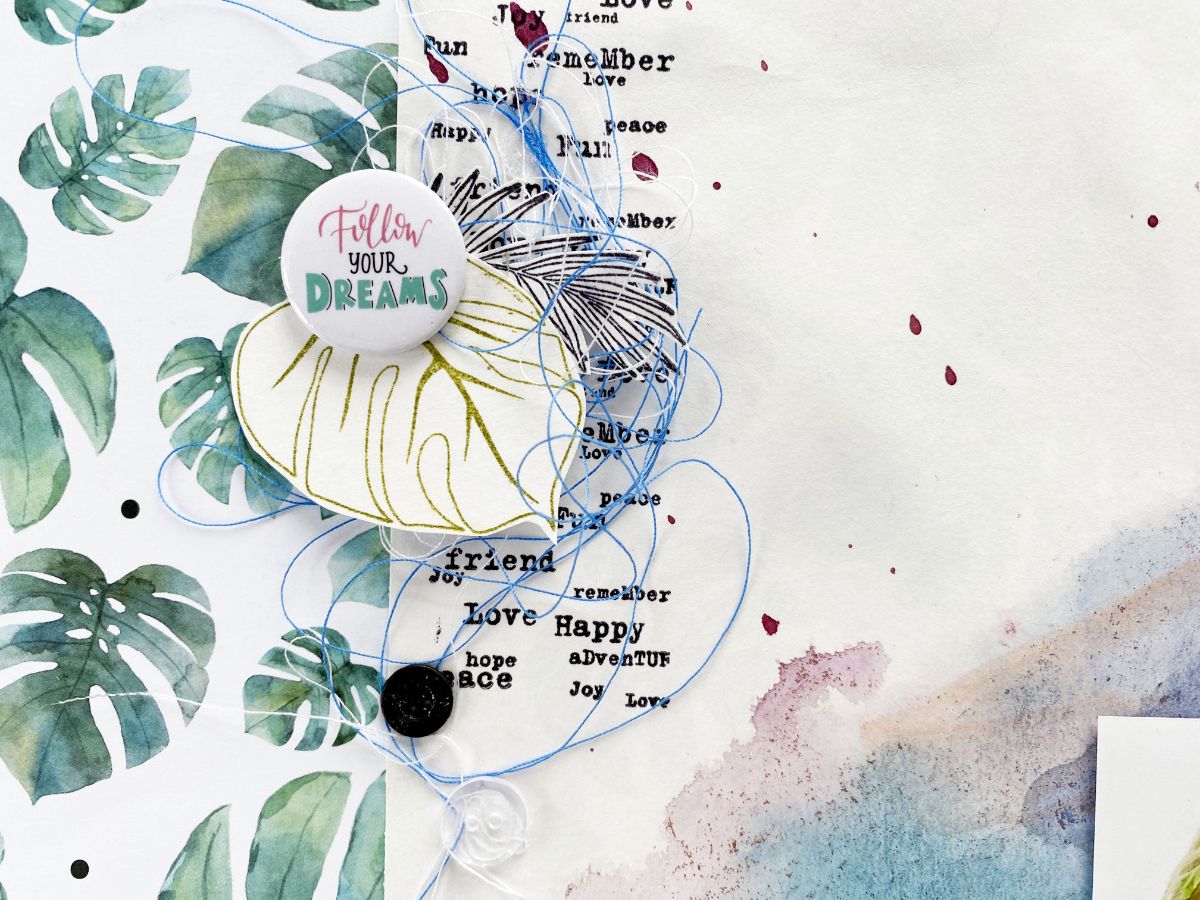 Love
Joy friend
Fun
remeMber
love
hope
Happy peace
Fun
friend
remeMber
Follow
YOUR
DREAMS
Love
peace
Fun
friend
Joy
remeMber
Love Happy
hope aDvenTUR
Joy Love